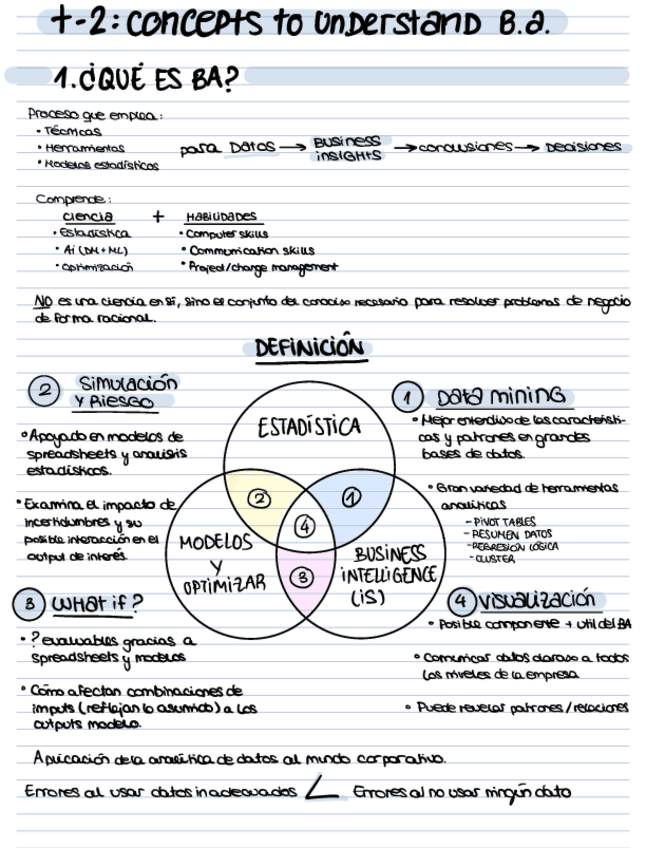 t-2: Concepts to understand B.a.
1. ¿QUÉ ES BA?
Proceso que emplea:
• Técnicas
• Herramientas
• Modelos estadísticos
para Datos → Business insights → conclusiones → Decisiones
Comprende:
Ciencia + Habilidades
• Estadística
• Ai (DM + ML)
• Optimización
• Computer skills
• Communication skills
• Project/change management
NO es una ciencia en sí, sino el conjunto del necesario para resolver problemas de negocio
de forma racional.
DEFINICIÓN
2 Simulación
y Riesgo
• Apoyado en modelos de
spreadsheets y analisis
estadísticos.
• Examina el impacto de
incertidumbres y su
posible interacción en el
output de interés.
ESTADÍSTICA
2
1
4
3
MODELOS
y
OPTIMIZAR
BUSINESS
INTELLIGENCE
(iS)
1 Data mining
• Mejor de las característi-
cas y patrones en grandes
bases de datos.
• Gran variedad de herramientas
analíticas
- PIVOT TABLES
- RESUMEN DATOS
- REGRESION LÓGICA
- CLUSTER
3 What if?
• ? evaluables gracias a
spreadsheets y modelos
• Cómo afectan combinaciones de
imputs (reflejan lo asumido) a los
outputs modelo.
4 Visualización
• Posible componente + util del BA
• Comunicar datos a todos
los niveles de la empresa
• Puede revelar patrones / relaciones
Aplicación de la analítica de datos al mundo corporativo.
Errores al usar datos inadecuados < Errores al no usar ningún dato